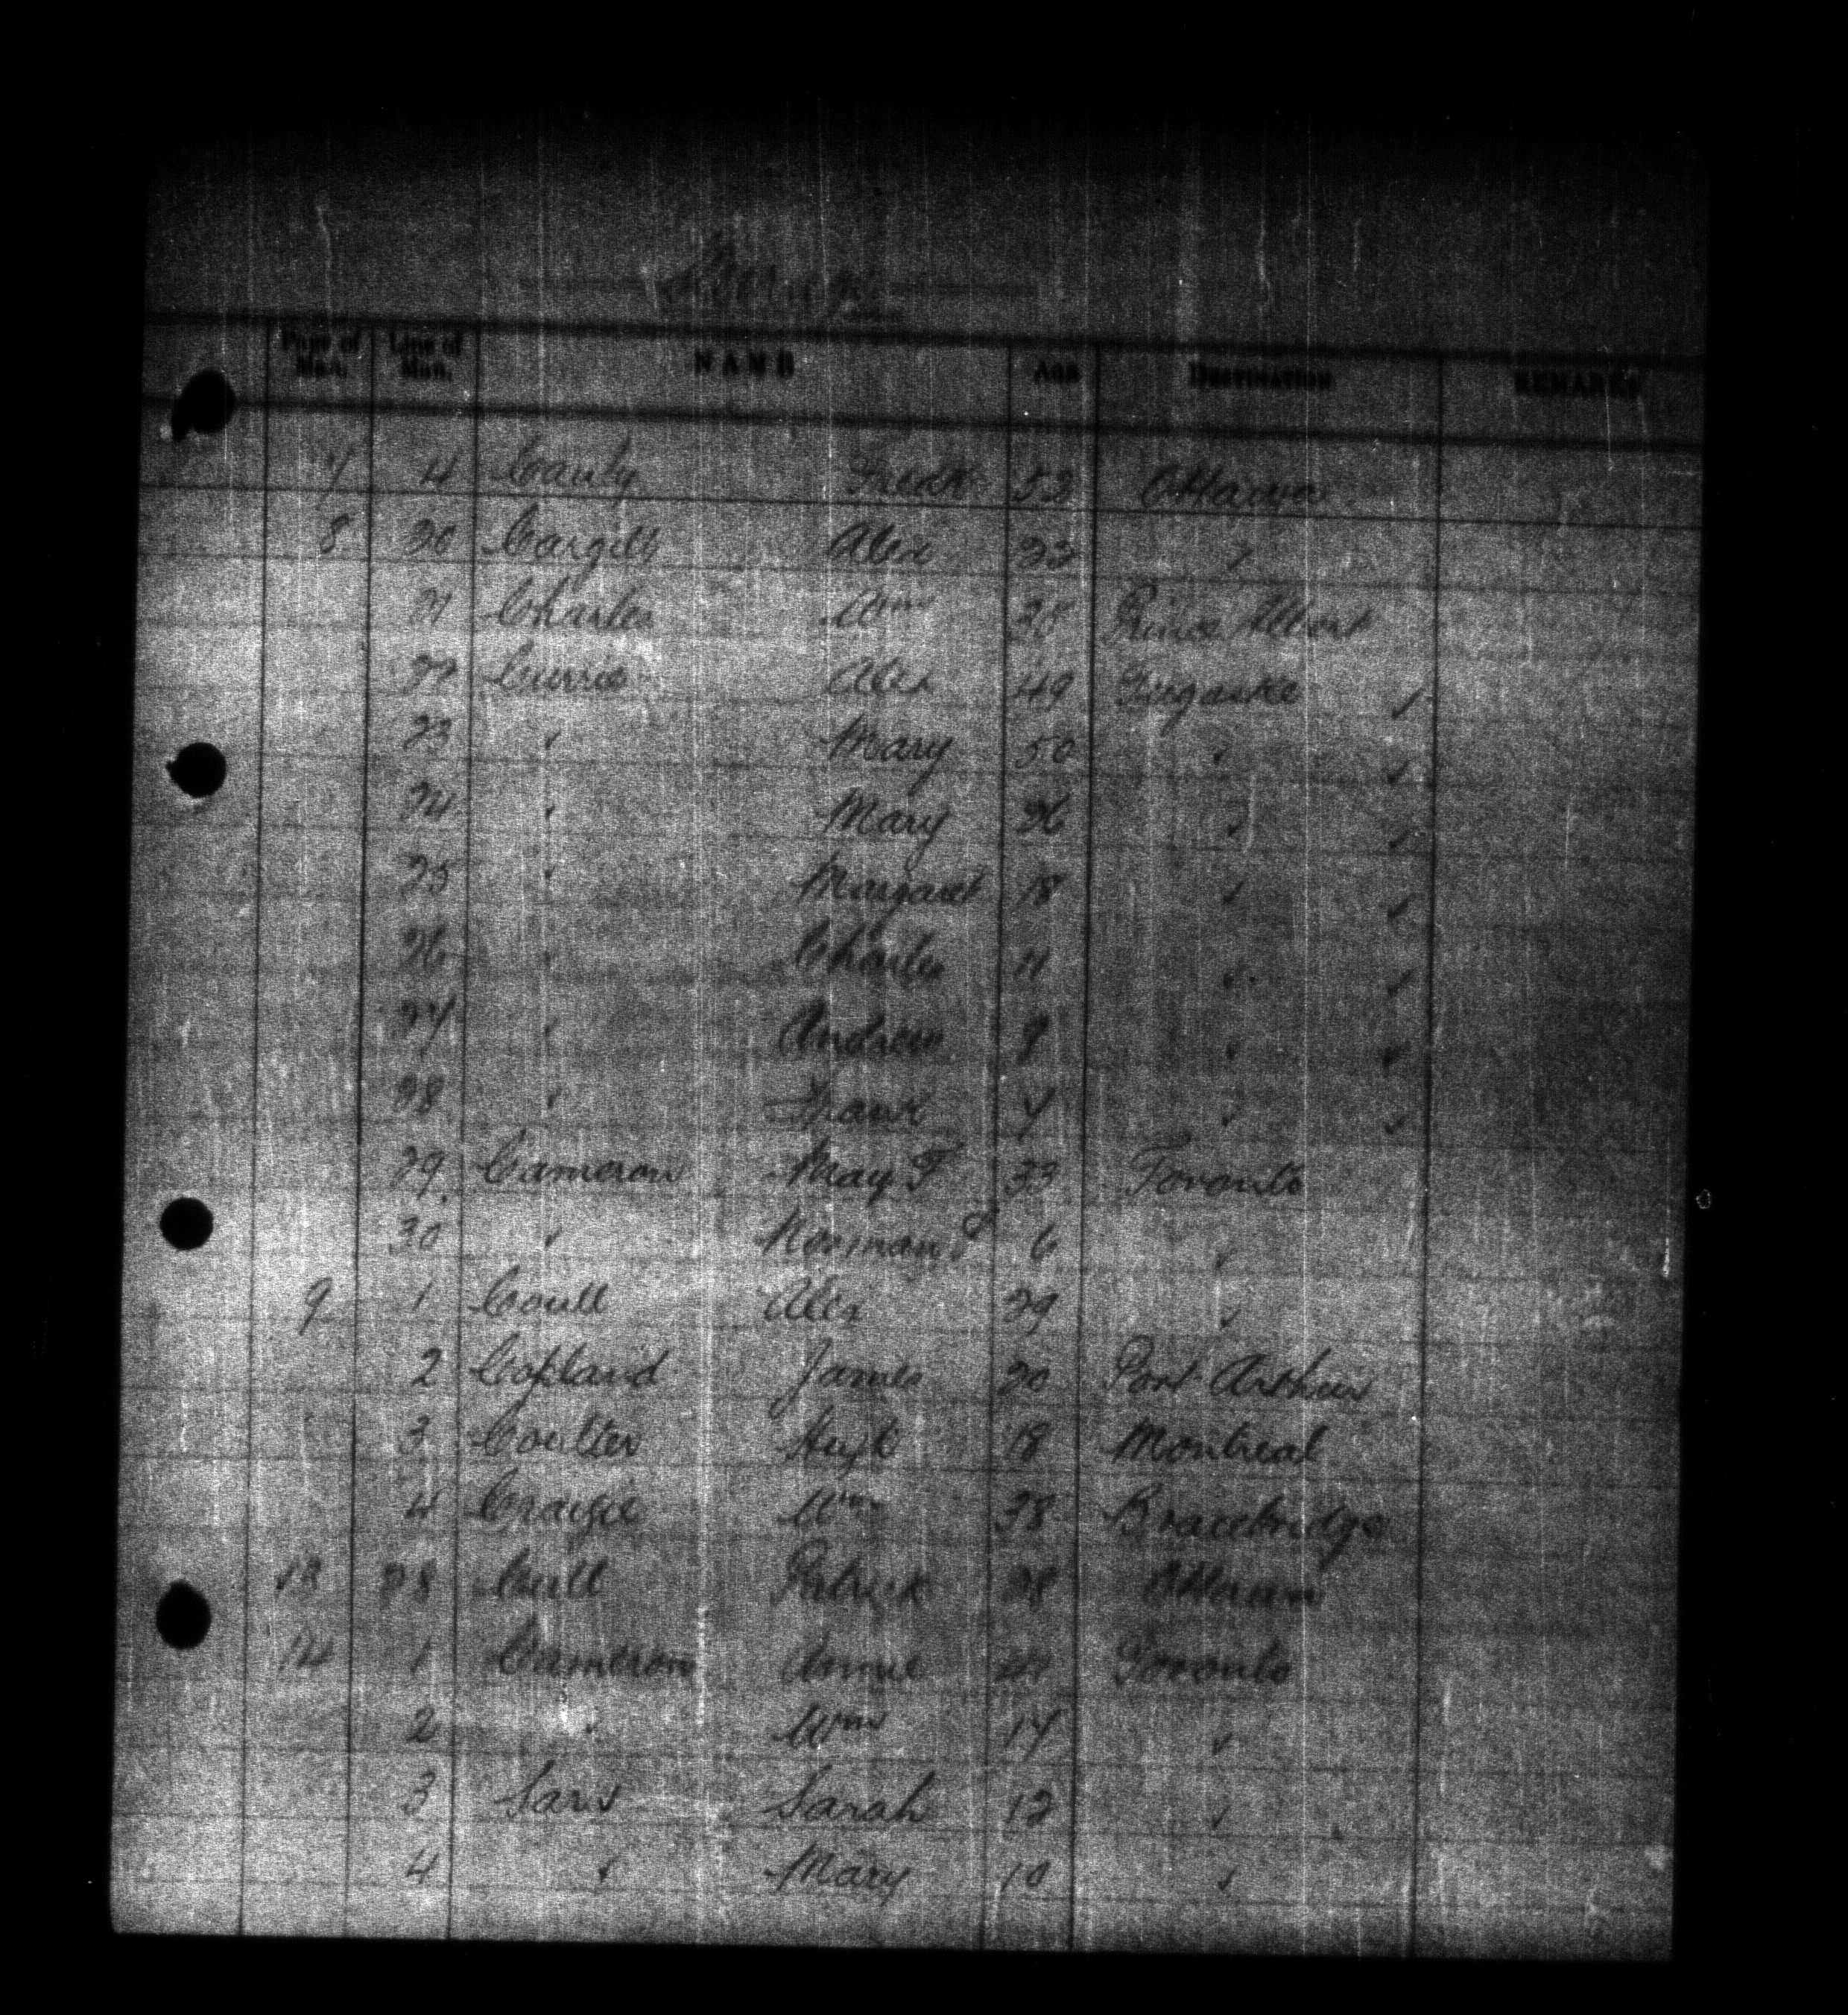 Page of Man. Line of Man. NAME AGE DESTINATION REMARKS
7 4 Canty Fredk 53 Ottawa
8 20 Cargill Alex 23 "
21 Charles Wm 25 Prince Albert
22 Currie Alex 49 Tugaske ✓
23 " Mary 50 " ✓
24 " Mary 26 " ✓
25 " Margaret 18 " ✓
26 " Charles 11 " ✓
27 " Andrew 9 " ✓
28 " Frank 7 " ✓
29 Cameron May F 33 Toronto
30 " Norman 6 "
9 1 Coull Alex 29 "
2 Copland James 20 Port Arthur
3 Coulter Hugh 18 Montreal
4 Craigie Wm 38 Bracebridge
28 Cull Patrick 28 Ottawa
14 1 Cameron Annie Toronto
2 " Wm 14 "
3 Sarah 12 "
4 " Mary 10 "